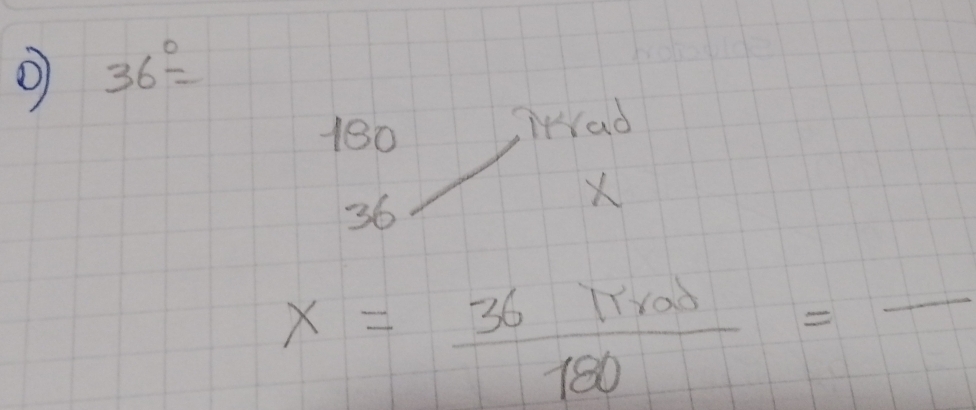 D) 36°=
180 πrad
36 x
x = 36 πrad / 180 = —